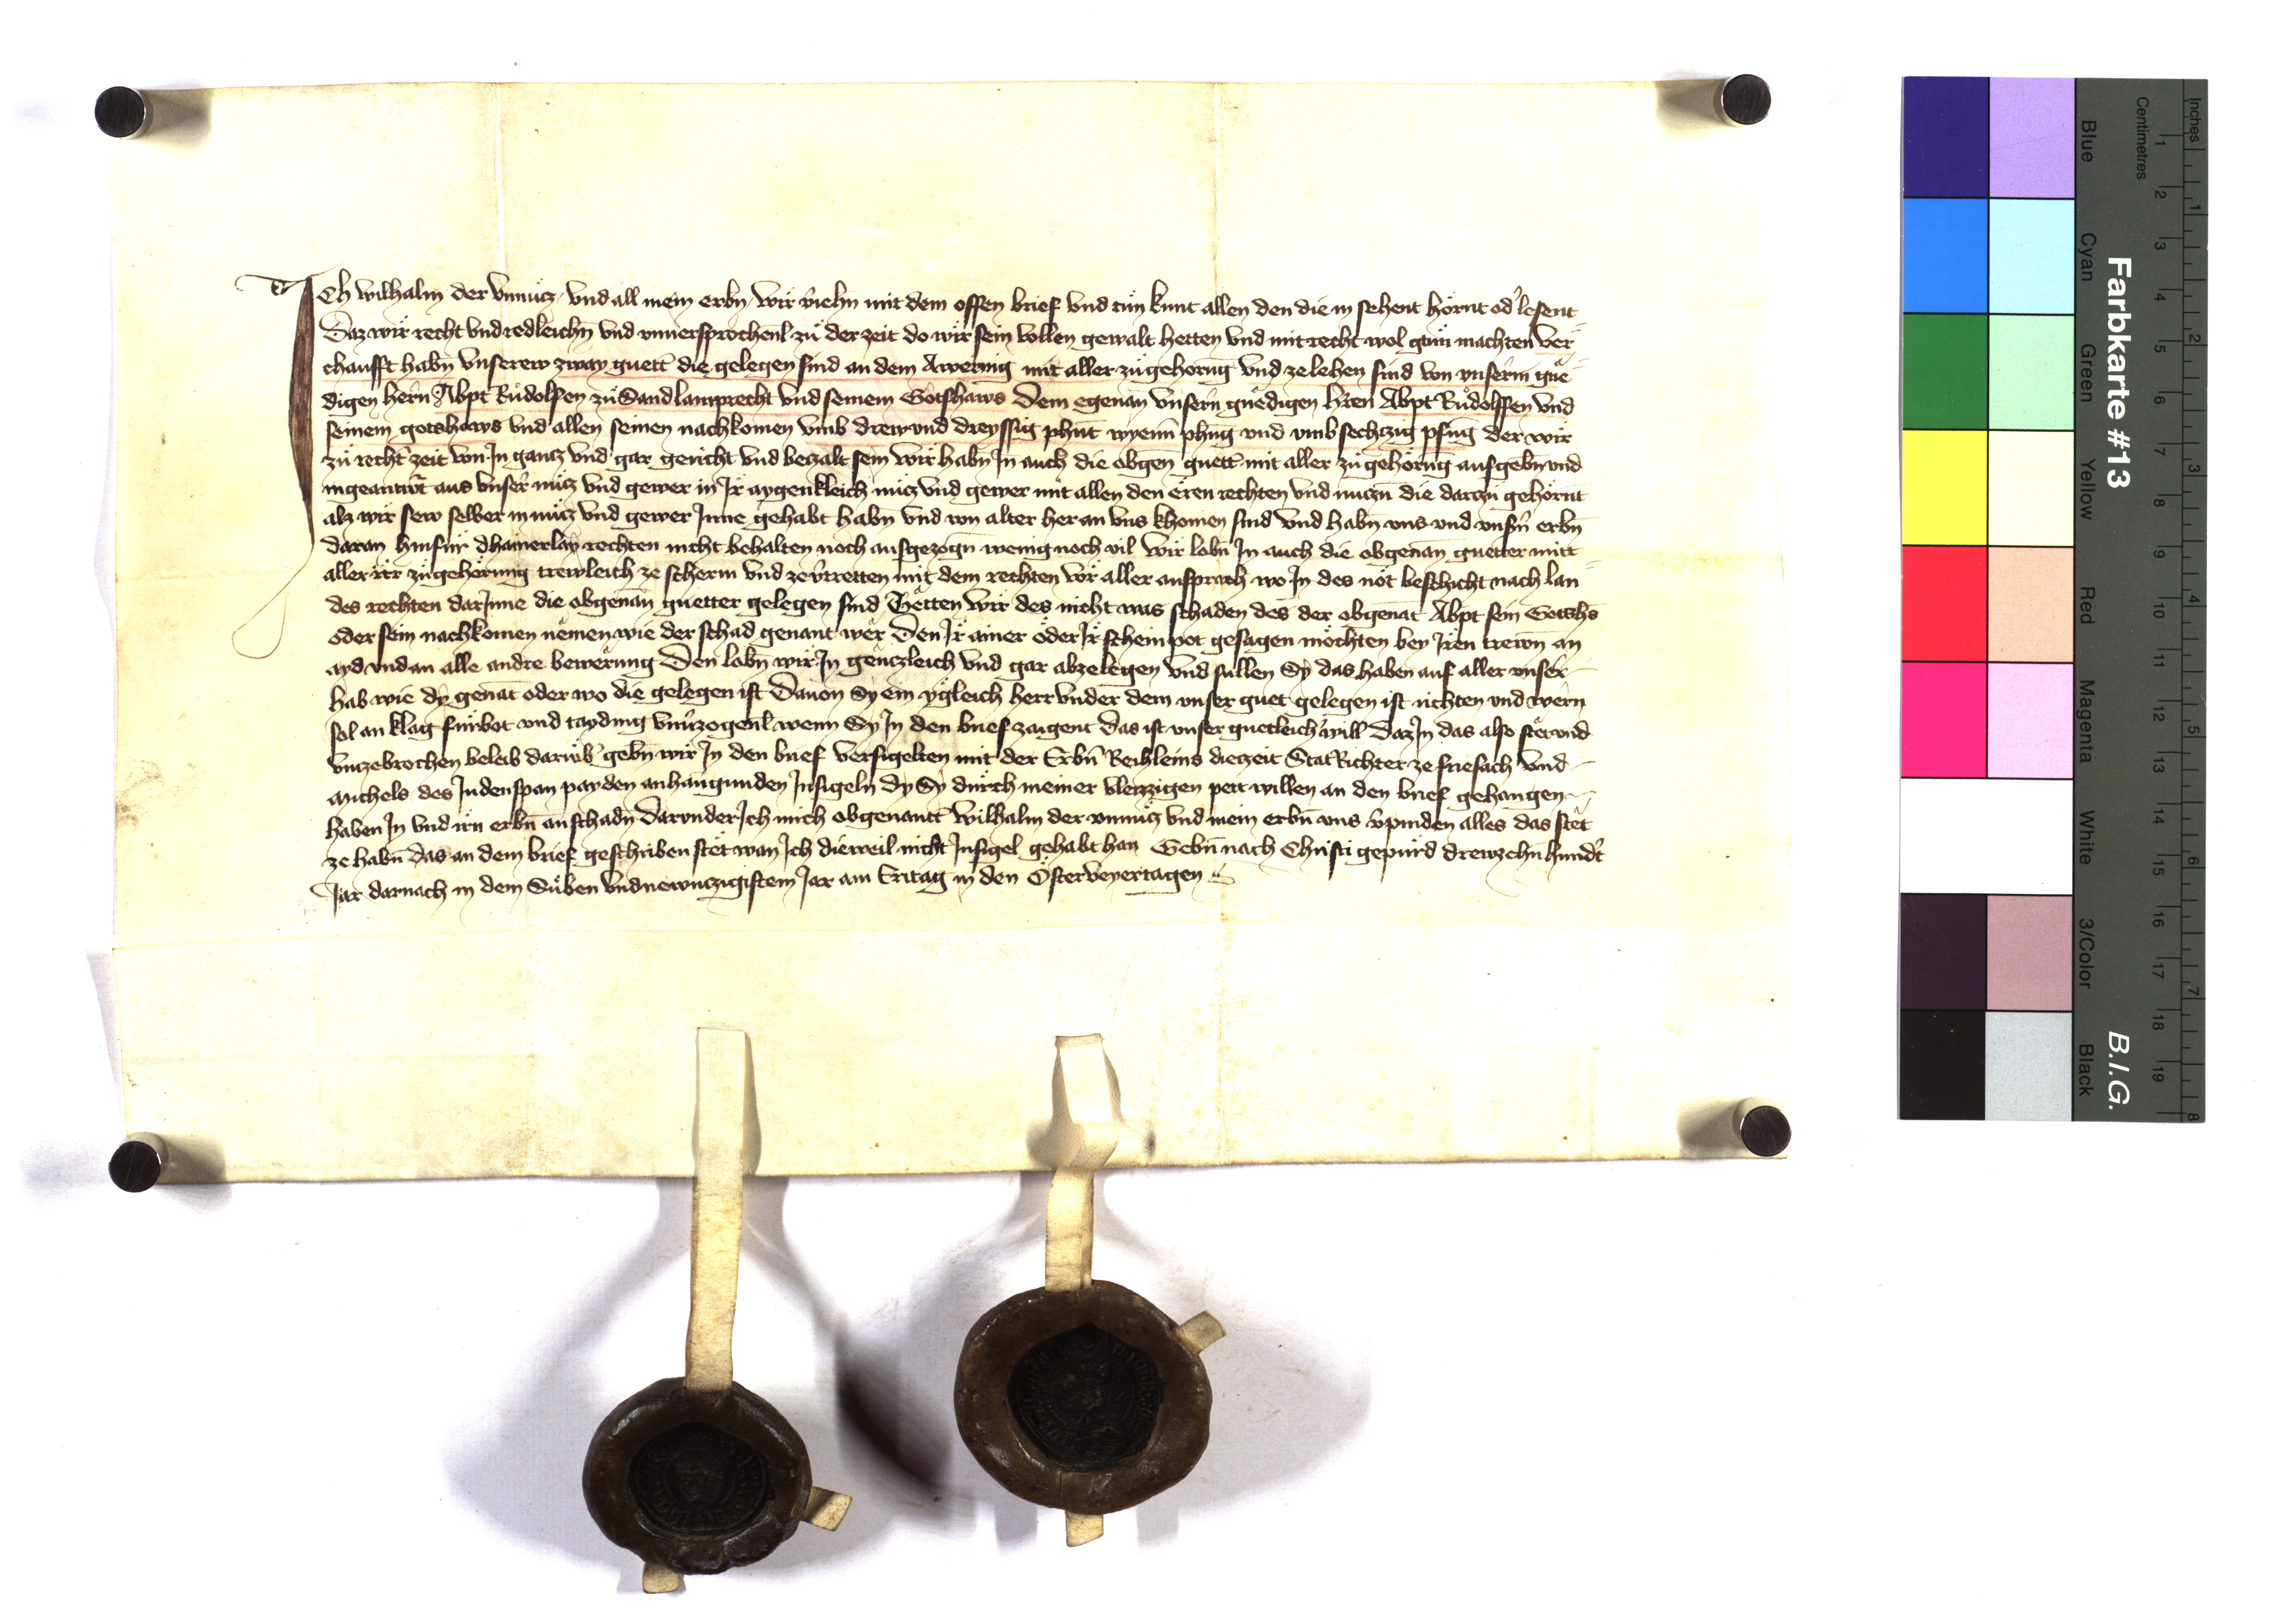 Ich wilhalm der vnnücz vnd all mein erbn̄ wir v̓iehn̄ mit dem offen brief vnd tün kunt allen den die in sehent hörnt od̓ lesent
Daz wir recht vnd redleichn̄ vnd vnuersprochenl zü der zeit do wir sein vollen gewalt hetten vnd mit recht wol getün machten ver
chaufft habn̄ vnserew zway guett die gelegen sind an dem Awernig mit aller zügehorūg vnd ze lehen sind von vnserm̄ gne
digen hern̄ Abpt Rüdolfen zü Sand lamprecht vnd seinem Gotshaws Dem egenan̄ vnsern̄ gnedigen hr̄en Abpt Rüdolffen vnd
seinem gotshaws vnd allen seinen nachkomen vmb drew vnd dreyssig phūt wyenn̄ phn̄g vnd vmb sechczig pfn̄g der wir
zü recht̓ zeit von In gancz vnd gar gericht vnd beczalt sein Wir habn̄ In auch die obgen̄ guett mit aller zü gehörūg aufgebn̄ vnd
ingeantwt̓ aus vnser̓ nücz vnd gewer in Ir aygenkleich nücz vnd gewer mit allen den eren rechten vnd nuczn̄ die darzü gehörnt
alz wir sew selber in nücz vnd gewer Inne gehabt habn̄ vnd von alter her an vns khomen sind vnd habn̄ vns vnd vnsn̓ erbn̄
daran hinfür dhainerlay rechten nicht behalten noch aufgezogn̄ wenig noch vil Wir lobn̄ In auch die obgenan̄ guetter mitt
aller irr zügehörung trewleich ze scherm vnd ze v̓tretten mit dem rechten vor aller ansprach wo In des nöt beschicht nach lan
des rechten dar Inne die obgenan̄ guetter gelegen sind Tetten wir des nicht was schaden des der obgenat̄ Abpt sein Gotshs̄
oder sein nachkomen nemen wie der schad genant wer Den Ir ainer oder Ir schein pot gesagen möchten bey Iren trewn̄ an
ayd vnd an alle andre bewerung Den lobn̄ wir In genczleich vnd gar abzelegen vnd sullen Sy das haben auf aller vnser̓
hab wie dy genat̄ oder wo die gelegen ist Dauon Sy ein ygleich herr vnder dem vnser guet gelegen ist richten vnd wern̄
sol an klag fürbot vnd tayding vnu̓zogenl wenn Sy In den brief zaigent Das ist vnser guetleich̓ will Daz In das also stet vnd
vnzebrochen beleib darüb̓ gebn̄ wir In den brief versigelten mit der Erbn̄ Reihleins die zeit StatRichter ze friesach vnd
Michels des Judenspan payden anhangunden Insigeln dy Sy durch meiner vleizzigen pett willen an den brief gehangen
haben In vnd irn̄ erbn̄ an schadn̄ darvnder Ich mich obgenantt wilhalm der vnnücz vnd mein erbn̄ vns v̓pinden alles das stet
ze habn̄ das an dem brief geschriben stet wan Ich dieweil nicht Insigel gehabt han Gebn̄ nach Christi gepürd drewzehn̄ hundt̓
Jar darnach in dem Süben vnd newnczigistem Jar am Eritag in den Osterveyertagen
Inches
Centimetres
1 2 3 4 5 6 7 8 9 10 11 12 13 14 15 16 17 18 19
1 2 3 4 5 6 7 8
Farbkarte #13
B.I.G.
Blue
Cyan
Green
Yellow
Red
Magenta
White
3/Color
Black